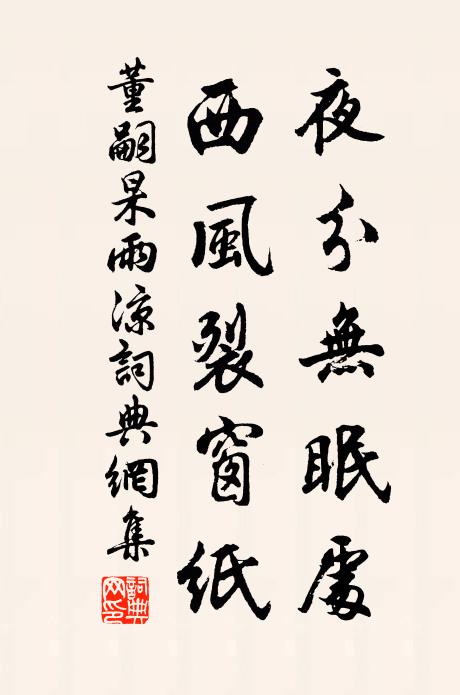 夜分無眠處
西風裂窗紙
董嗣杲雨涼詞典網集
詞典網印